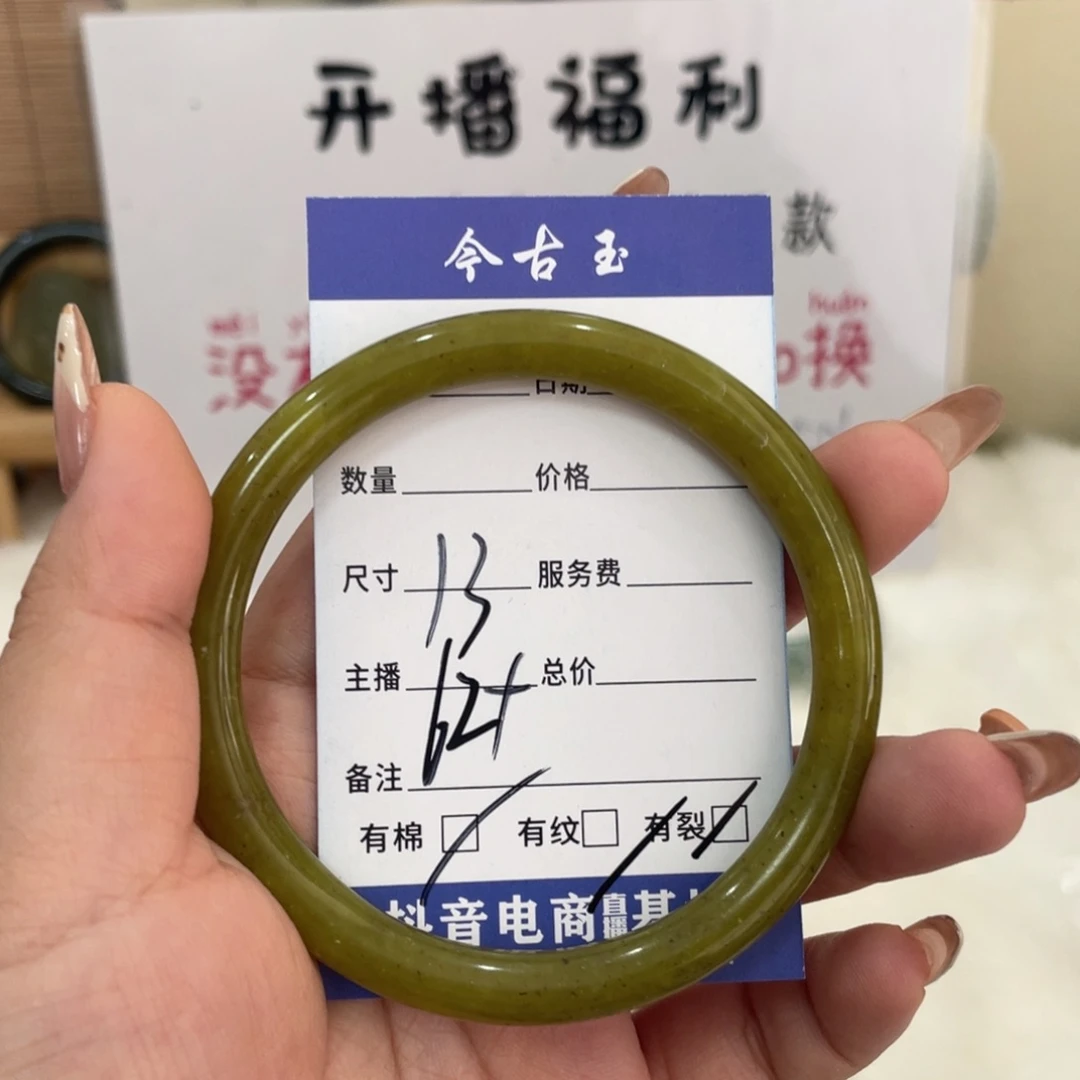 开播福利
款
今古玉
huàn
没 换
日期
数量 价格
尺寸 13 服务费
主播 62+ 总价
备注
有棉 有纹 有裂
抖音电商直播基